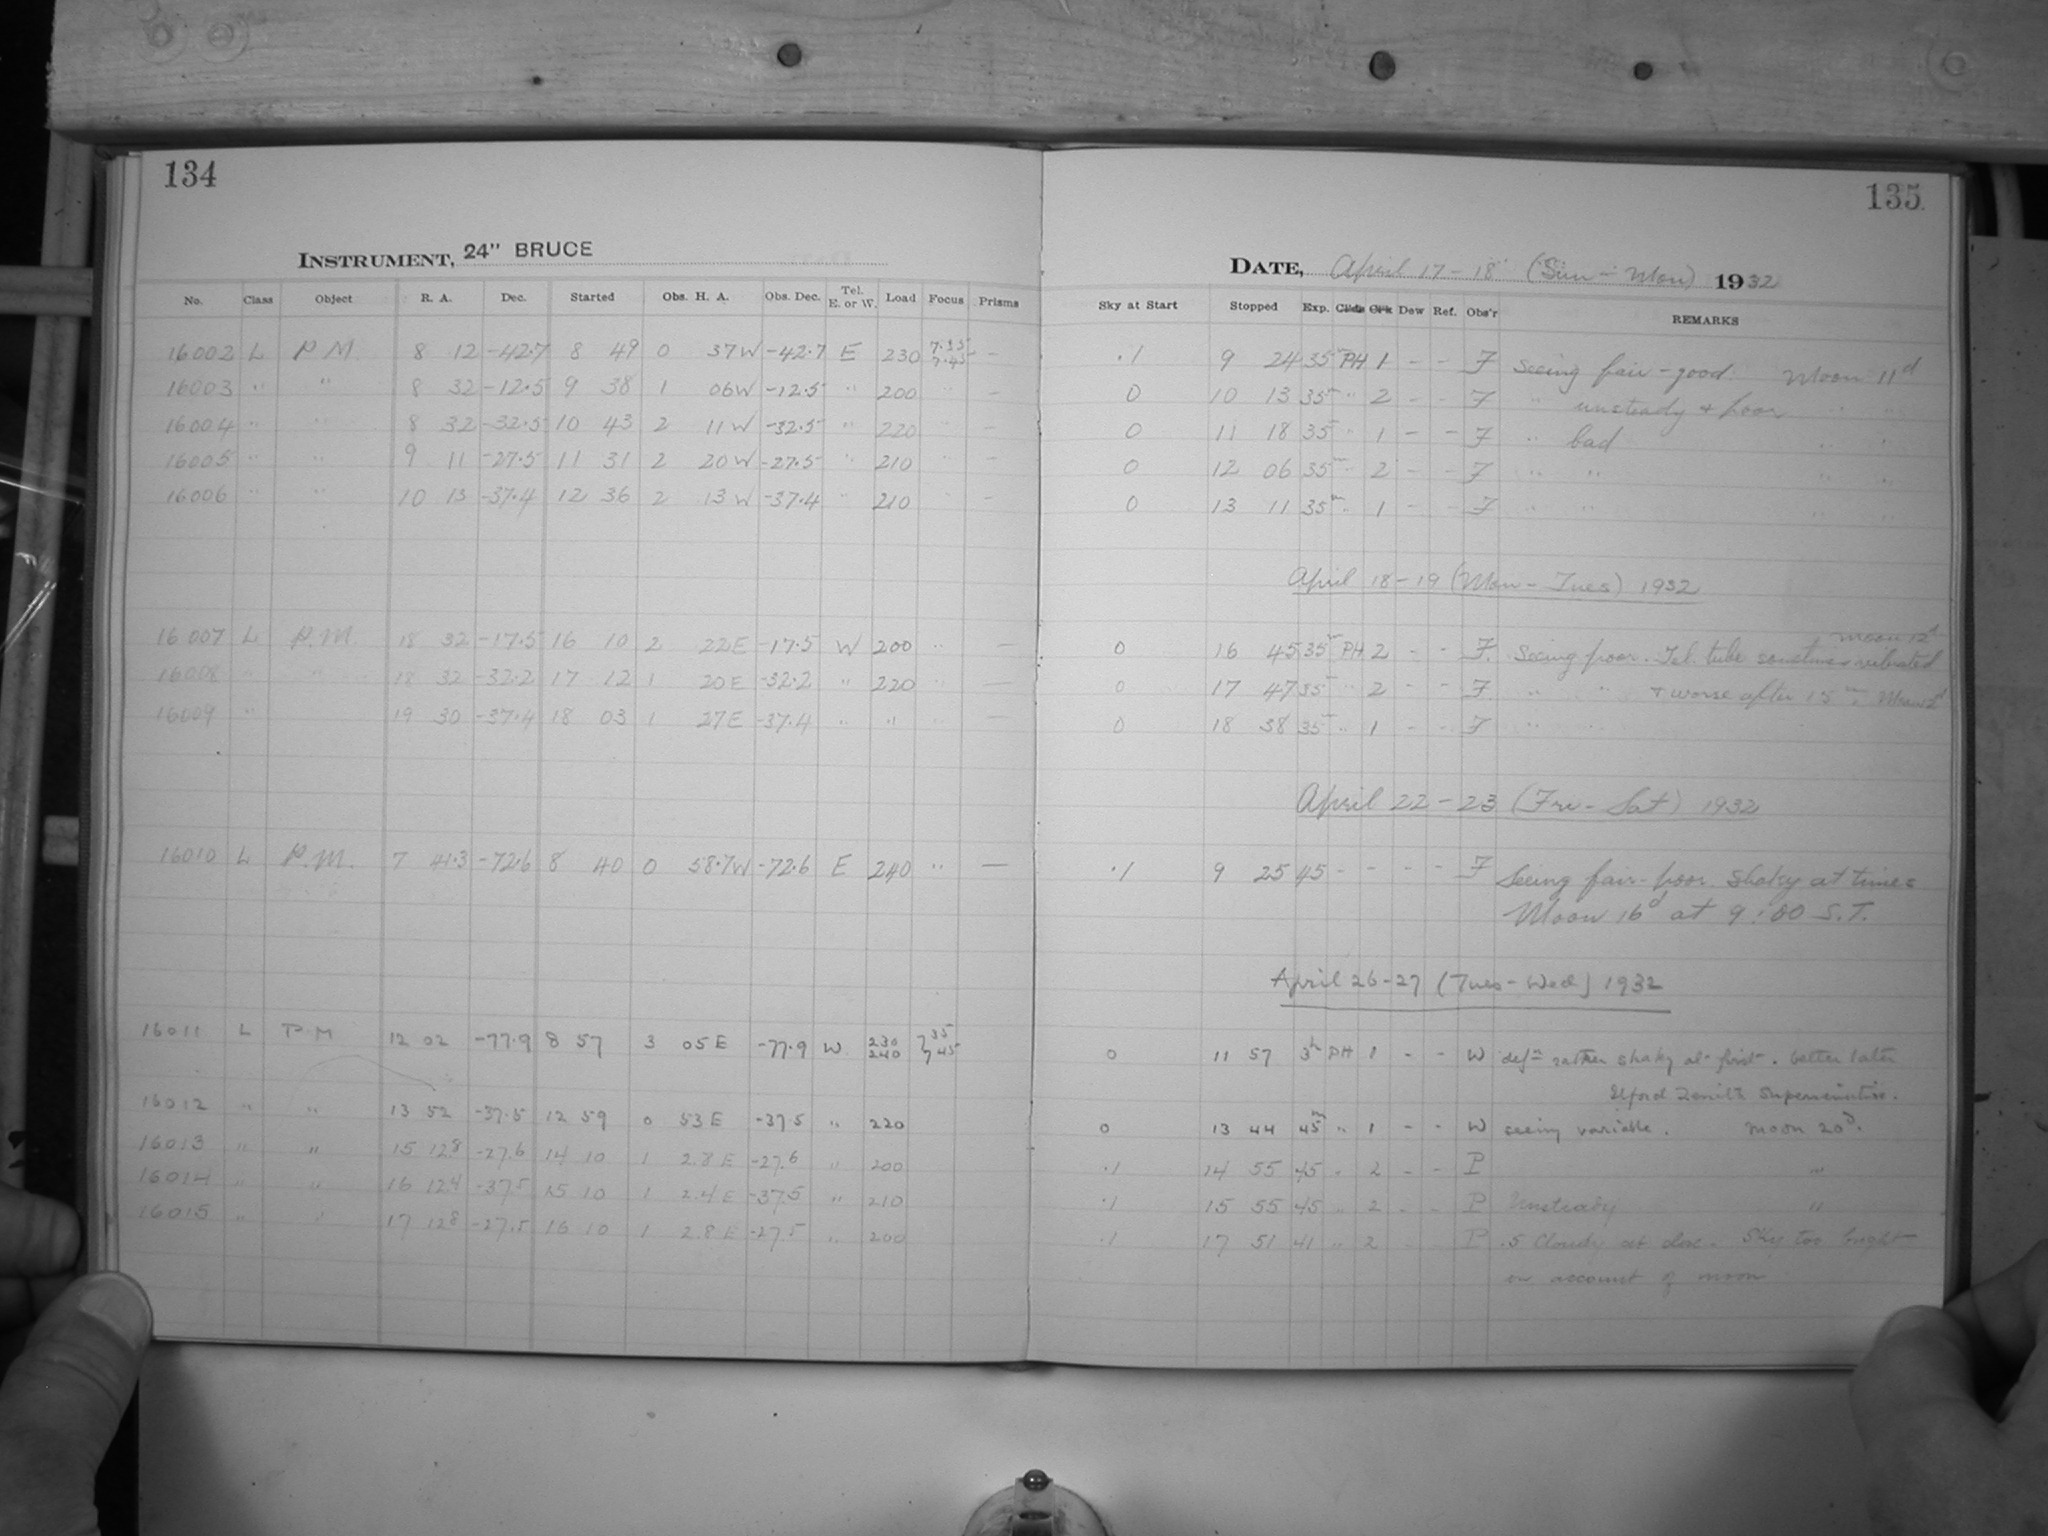 134
INSTRUMENT, 24" BRUCE
No. Class Object R. A. Dec. Started Obs. H. A. Obs. Dec. Tel. E. or W. Load Focus Prisms
16002 L P.M. 8 12 -42.7 8 49 0 37W -42.7 E 230 7.35 7.45 —
16003 " " 8 32 -12.5 9 38 1 06W -12.5 " 200 " —
16004 " " 8 32 -32.5 10 43 2 11W -32.5 " 220 " —
16005 " " 9 11 -27.5 11 31 2 20W -27.5 " 210 " —
16006 " " 10 13 -37.4 12 36 2 13W -37.4 " 210 " —
16007 L P.M. 18 32 -17.5 16 10 2 22E -17.5 W 200 " —
16008 " " 18 32 -32.2 17 12 1 20E -32.2 " 220 " —
16009 " 19 30 -37.4 18 03 1 27E -37.4 " " " —
16010 L P.M. 7 41.3 -72.6 8 40 0 58.7W -72.6 E 240 " —
16011 L P M 12 02 -77.9 8 57 3 05E -77.9 W 230 240 7 35 7 45
16012 " " 13 52 -37.5 12 59 0 53E -37.5 " 220
16013 " " 15 12.8 -27.6 14 10 1 2.8E -27.6 " 200
16014 " " 16 12.4 -37.5 15 10 1 2.4E -37.5 " 210
16015 " " 17 12.8 -27.5 16 10 1 2.8E -27.5 " 200
135
DATE, April 17-18 (Sun - Mon) 1932
Sky at Start Stopped Exp. Clk Dew Ref. Obs'r REMARKS
.1 9 24 35m PH 1 - - F Seeing fair - good. Moon 11d
0 10 13 35m " 2 - - F " unsteady + poor " "
0 11 18 35 " 1 - - F " bad " "
0 12 06 35m " 2 - - F " " " "
0 13 11 35m " 1 - - F " " " "
April 18-19 (Mon - Tues) 1932
moon 12d
0 16 45 35m PH 2 - - F. Seeing poor. Tel. tube sometimes vibrated
0 17 47 35m " 2 - - F " " + worse after 15m. Moon 12d
0 18 38 35m " 1 - - F " "
April 22-23 (Fri - Sat) 1932
.1 9 25 45 - - - - F Seeing fair - poor. Shaky at times
Moon 16d at 9:00 S.T.
April 26-27 (Tues - Wed) 1932
0 11 57 3h PH 1 - - W defn rather shaky at first. better later
Ilford Zenith Supersensitive.
0 13 44 45m " 1 - - W seeing variable. moon 20d.
.1 14 55 45 " 2 - - P "
.1 15 55 45 " 2 - - P Unsteady "
.1 17 51 41 " 2 - P .5 Cloudy at close. Sky too bright
on account of moon